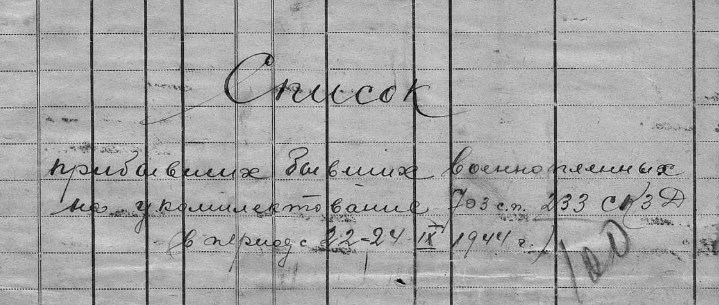 Список
прибывших бывших военнопленных
на укомплектование 703 с.п. 233 скзд
(в период с 22-24 IX 1944 г.)
100